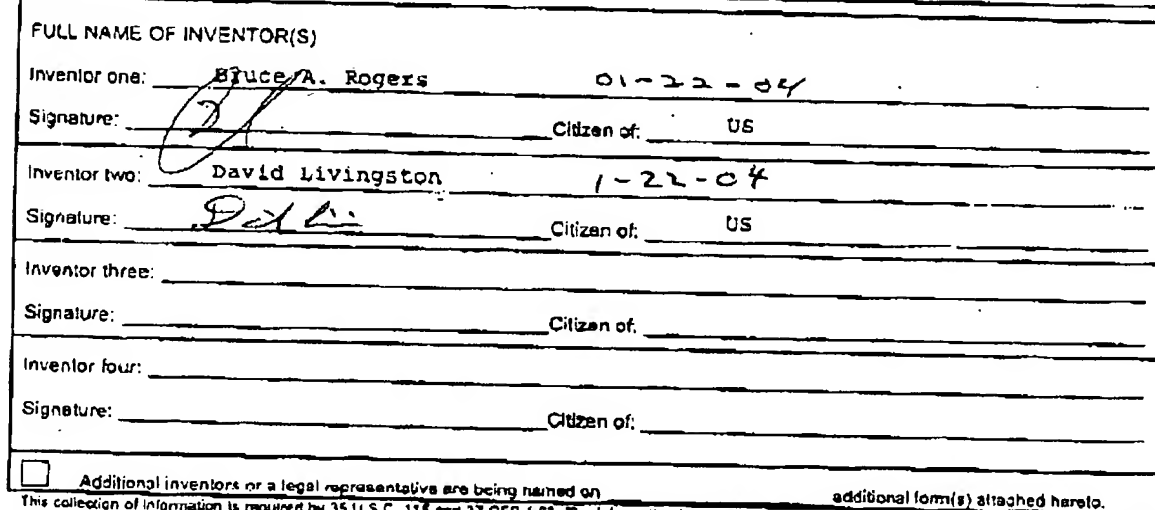 FULL NAME OF INVENTOR(S)
Inventor one: Bruce A. Rogers 01-22-04
Signature: Citizen of: US
Inventor two: David Livingston 1-22-04
Signature: Citizen of: US
Inventor three:
Signature: Citizen of:
Inventor four:
Signature: Citizen of:
Additional inventors or a legal representative are being named on additional form(s) attached hereto.
This collection of information is required by 35 U.S.C. 115 and 37 CFR